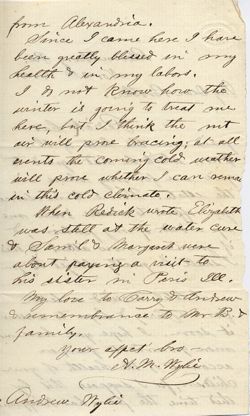 from Alexandria.
Since I came here I have
been greatly blessed in my
health & in my labors.
I do not know how the
winter is going to treat me
here, but I think the mt
air will prove bracing; at all
events the coming cold weather
will prove whether I can remain
in this cold climate.
When Redick wrote, Elizabeth
was still at the water cure
& Saml & Margaret were
about paying a visit to
his sister in Peris Ill.
My love to Carry & Andrew
& remembrance to Mr B. &
family.
Your affect bro.
A. M. Wylie
Andrew Wylie